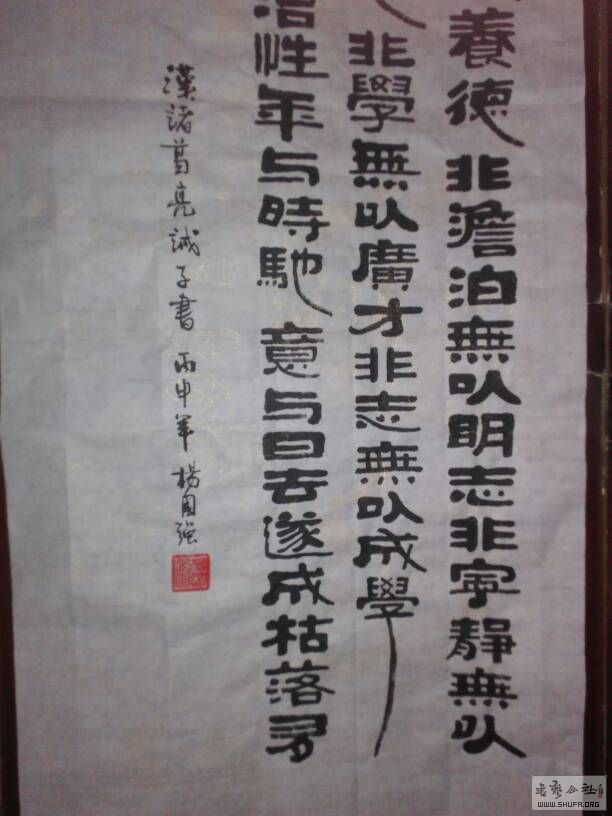 養德非澹泊無以明志非寧靜無以
非學無以廣才非志無以成學
治性年与時馳意与日去遂成枯落多
漢諸葛亮誡子書 丙申年 楊国强
书艺公社
WWW.SHUFA.ORG